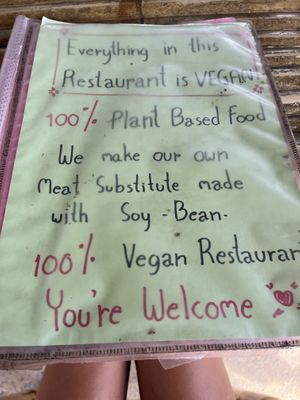 Everything in this
Restaurant is VEGAN!
100% Plant Based Food
We make our own
Meat Substitute made
with Soy -Bean-
100% Vegan Restauran
You're Welcome